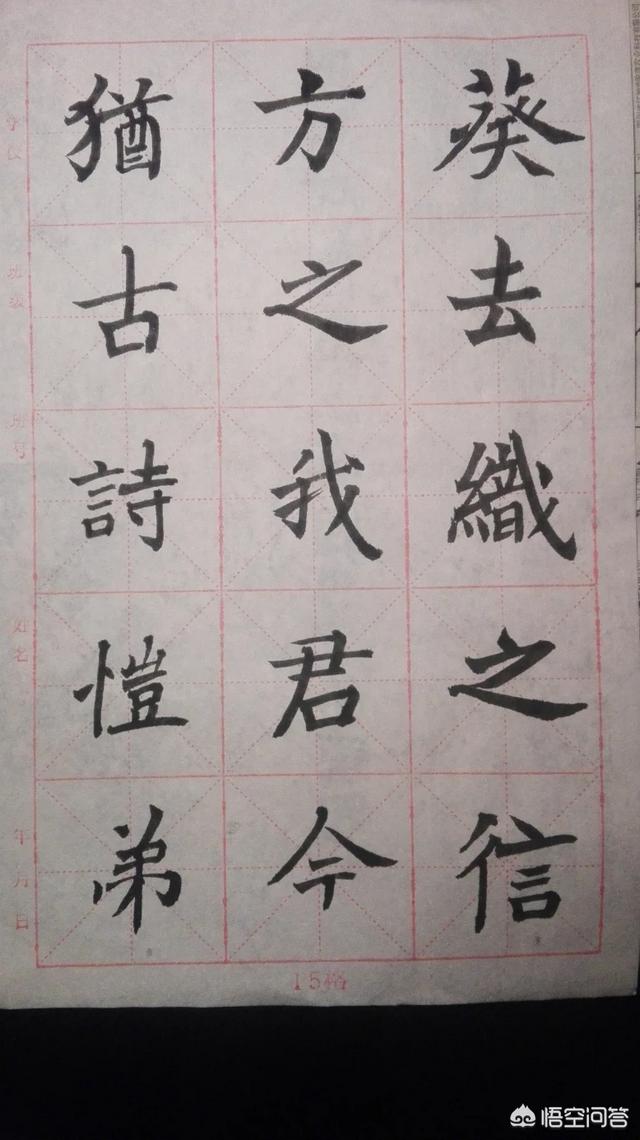 葵去織之信
方之我君今
猶古詩愷弟
班级
姓名
年月日
15格
悟空问答